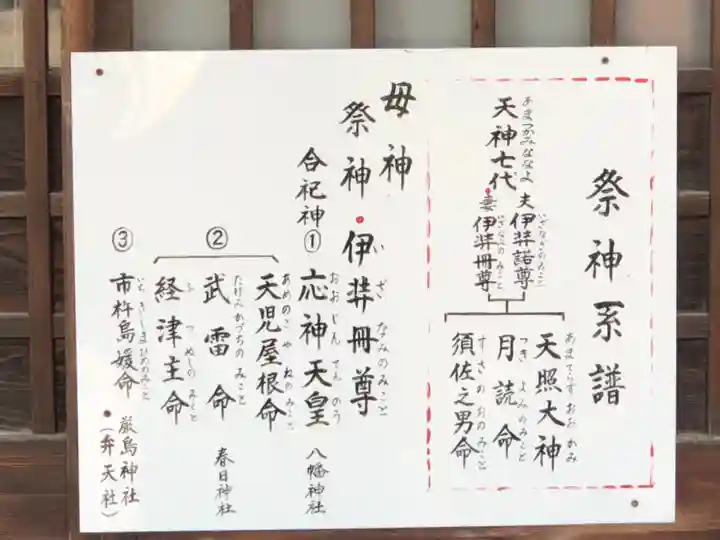 祭神系譜
あまつかみななよ
天神七代
いざなぎのみこと
夫 伊弉諾尊
いざなみのみこと
妻 伊弉冊尊
あまてらすおおかみ
天照大神
つきよみのみこと
月読命
すさのおのみこと
須佐之男命
母神
祭神・伊弉冊尊
いざなみのみこと
合祀神
① 応神天皇
おおじんてんのう
八幡神社
②
天児屋根命
あめのこやねのみこと
武雷命
たけみかづちのみこと
春日神社
経津主命
ふつぬしのみこと
③ 市杵島媛命
いちきしまひめのみこと
厳島神社
(弁天社)